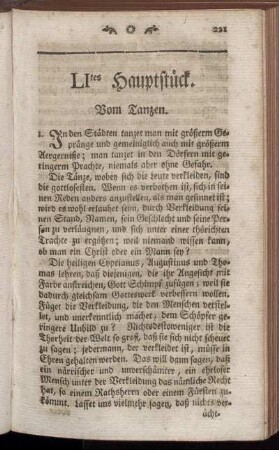 221
LItes Hauptstück.
Vom Tanzen.
1. In den Städten tanzet man mit größerm Ge-
pränge und gemeiniglich auch mit größerm
Aergerniße; man tanzet in den Dörfern mit ge-
ringerm Prachte, niemals aber ohne Gefahr.
Die Tänze, wobey sich die leute verkleiden, sind
die gottlosesten. Wenn es verbothen ist, sich in sei-
nen Reden anders anzustellen, als man gesinnet ist;
wird es wohl erlaubet seyn, durch Verkleidung sei-
nen Stand, Namen, sein Geschlecht und seine Per-
son zu verläugnen, und sich unter einer thörichten
Trachte zu ergötzen; weil niemand wissen kann,
ob man ein Christ oder ein Mann sey?
Die heiligen Cyprianus, Augustinus und Tho-
mas lehren, daß diejenigen, die ihr Angesicht mit
Farbe anstreichen, Gott Schimpf zufügen; weil sie
dadurch gleichsam Gotteswerk verbessern wollen.
Füget die Verkleidung, die den Menschen verstel-
let, und unerkenntlich machet, dem Schöpfer ge-
ringere Unbild zu? Nichtsdestoweniger ist die
Thorheit der Welt so groß, daß sie sich nicht scheuet
zu sagen; jedermann, der verkleidet ist, müsse in
Ehren gehalten werden. Das will dann sagen, daß
ein närrischer und unverschämter, ein ehrloser
Mensch unter der Verkleidung das nämliche Recht
hat, so einem Rathsherrn oder einem Fürsten zu-
kömmt. Lasset uns vielmehr sagen, daß nichts ver-
ächt-